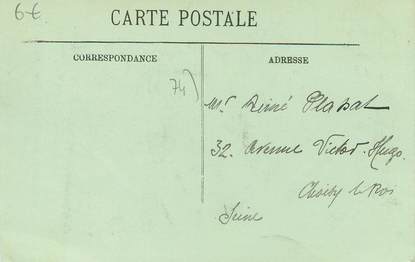 6€
CARTE POSTALE
CORRESPONDANCE
ADRESSE
74
Mr René Plasat
32. Avenue Victor-Hugo.
Choisy le Roi
Seine